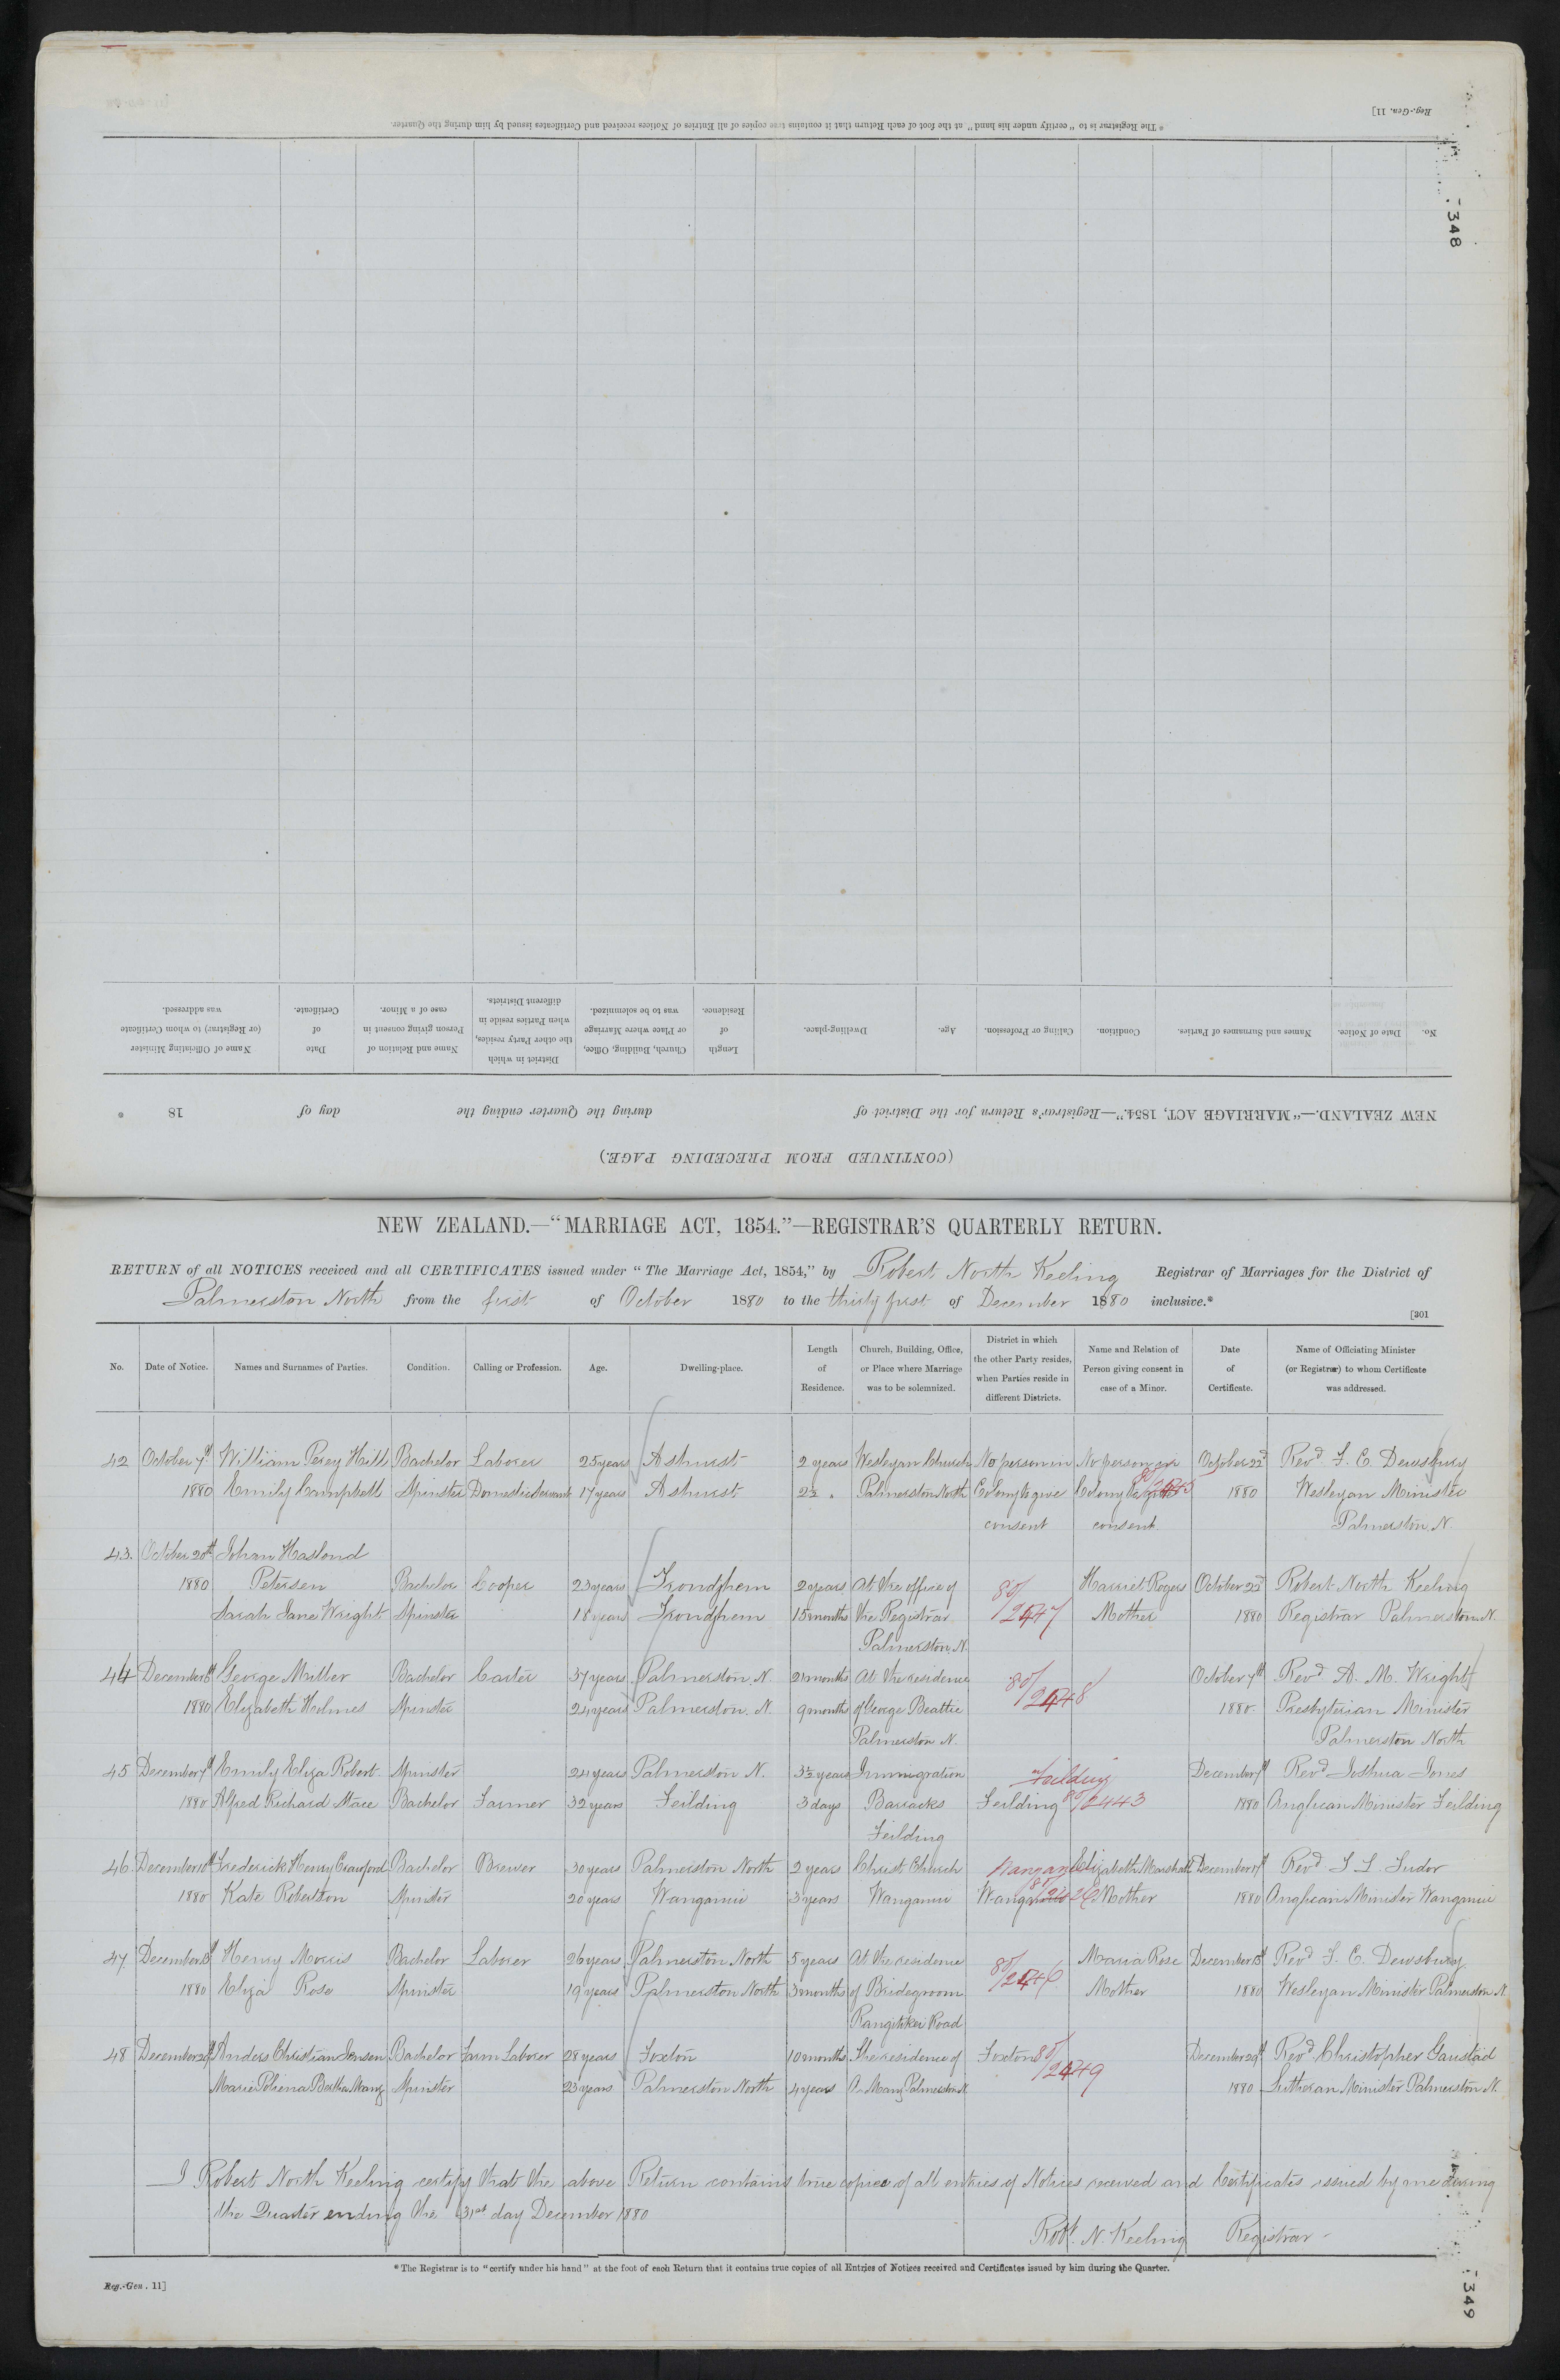 * The Registrar is to "certify under his hand" at the foot of each Return that it contains true copies of all Entries of Notices received and Certificates issued by him during the Quarter.
Reg.-Gen. 11]
348
No. Date of Notice. Names and Surnames of Parties. Condition. Calling or Profession. Age. Dwelling-place. Length of Residence. Church, Building, Office, or Place where Marriage was to be solemnized. District in which the other Party resides, when Parties reside in different Districts. Name and Relation of Person giving consent in case of a Minor. Date of Certificate. Name of Officiating Minister (or Registrar) to whom Certificate was addressed.
NEW ZEALAND.—"MARRIAGE ACT, 1854."—Registrar's Return for the District of during the Quarter ending the day of 18 *
(CONTINUED FROM PRECEDING PAGE.)
NEW ZEALAND.—"MARRIAGE ACT, 1854."—REGISTRAR'S QUARTERLY RETURN.
RETURN of all NOTICES received and all CERTIFICATES issued under "The Marriage Act, 1854," by Robert North Keeling Registrar of Marriages for the District of
Palmerston North from the first of October 1880 to the thirty first of December 1880 inclusive.*
[301
No. Date of Notice. Names and Surnames of Parties. Condition. Calling or Profession. Age. Dwelling-place. Length of Residence. Church, Building, Office, or Place where Marriage was to be solemnized. District in which the other Party resides, when Parties reside in different Districts. Name and Relation of Person giving consent in case of a Minor. Date of Certificate. Name of Officiating Minister (or Registrar) to whom Certificate was addressed.
42 October 7th William Percy Hill Bachelor Laborer 25 years Ashurst 2 years Wesleyan Church No person in No person in October 22d Revd F. C. Dewsbury
1880 Emily Campbell Spinster Domestic Servant 17 years Ashurst 2½ " Palmerston North Colony to give Colony to give 1880 Wesleyan Minister
consent consent Palmerston N.
43. October 20th Johan Hasloud
1880 Petersen Bachelor Cooper 23 years Trondjhem 2 years At the office of 80/2447 Harriet Rogers October 22d Robert North Keeling
Sarah Jane Wright Spinster 18 years Trondjhem 15 months the Registrar Mother 1880 Registrar Palmerston N.
Palmerston N.
44 December 6th George Miller Bachelor Carter 37 years Palmerston N. 21 months At the residence 80/2448 October 7th Revd A. M. Wright
1880 Elizabeth Holmes Spinster 24 years Palmerston N. 9 months of George Beattie 1880. Presbyterian Minister
Palmerston N. Palmerston North
45 December 7th Emily Eliza Robert Spinster 24 years Palmerston N. 3½ years Immigration Feilding December 7th Revd Joshua Jones
1880 Alfred Richard Mace Bachelor Farmer 32 years Feilding 3 days Barracks Feilding 80/2443 1880 Anglican Minister Feilding
Feilding
46 December 10th Frederick Henry Crawford Bachelor Brewer 30 years Palmerston North 2 years Christ Church Wanganui Elizabeth Marshall December 17th Revd T. L. Tudor
1880 Kate Robertson Spinster 20 years Wanganui 3 years Wanganui Wanganui Mother 1880 Anglican Minister Wanganui
47. December 13th Henry Morris Bachelor Laborer 26 years Palmerston North 5 years At the residence 80/2446 Maria Rose December 13th Revd F. C. Dewsbury
1880 Eliza Rose Spinster 19 years Palmerston North 3 months of Bridegroom Mother 1880 Wesleyan Minister Palmerston N.
Rangitikei Road
48 December 29th Anders Christian Jensen Bachelor Farm Laborer 28 years Foxton 10 months The residence of Foxton 80/2449 December 29th Revd Christopher Gaustad
Marie Bertha Manz Spinster 23 years Palmerston North 4 years A. Manz Palmerston N. 1880 Lutheran Minister Palmerston N.
I Robert North Keeling certify that the above Return contains true copies of all entries of Notices received and Certificates issued by me during
the Quarter ending the 31st day December 1880
Robt. N. Keeling Registrar
* The Registrar is to "certify under his hand" at the foot of each Return that it contains true copies of all Entries of Notices received and Certificates issued by him during the Quarter.
Reg.-Gen. 11]
349